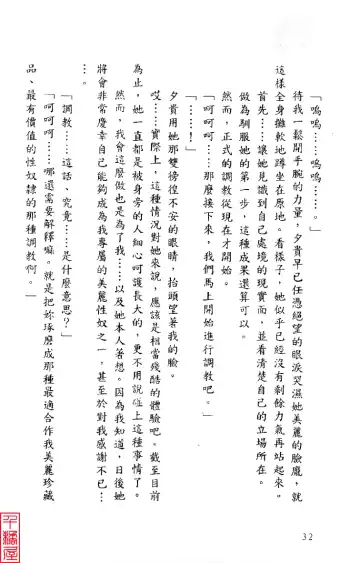 「嗚嗚……嗚嗚……。」
待我一鬆開手腕的力量,夕貴早已任憑絕望的眼淚哭濕她美麗的臉龐,就
這樣全身癱軟地蹲坐在原地。看樣子,她似乎已經沒有剩餘力氣再站起來。
首先……讓她見識到自己處境的現實面,並看清楚自己的立場所在。
做為馴服她的第一步,這種成果還算可以。
然而,正式的調教從現在才開始。
「呵呵呵……那麼接下來,我們馬上開始進行調教吧。」
「……!」
夕貴用她那雙徬徨不安的眼睛,抬頭望著我的臉。
哎……實際上,這種情況對她來說,應該是相當殘酷的體驗吧。截至目前
為止,她一直都是被身旁的人細心呵護長大的,更不用說碰上這種事情了。
然而,我會這麼做也是為了我……以及她本人著想。因為我知道,日後她
將會非常慶幸自己能夠成為我專屬的美麗性奴之一,甚至於對我感謝不已…
…。
「調教……這話、究竟……是什麼意思?」
「呵呵呵……哪還需要解釋嘛。就是把妳琢磨成那種最適合作我美麗珍藏
品、最有價值的性奴隸的那種調教啊。」
32